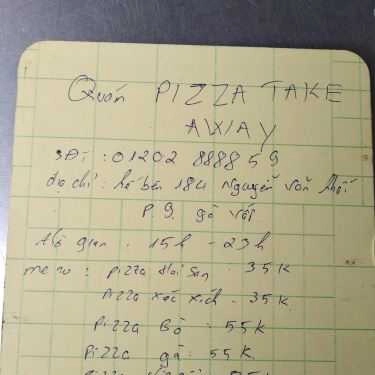 Quán PIZZA TAKE
AWAY
SĐT : 01202 8888 59
địa chỉ : kế bên 184 Nguyễn văn khối
P 9. gò vấp
thời gian . 15h - 23h
menu : pizza Hải Sản . 35K
pizza xúc xích . 35K
pizza Bò . 55K
pizza gà . 55K
pizza